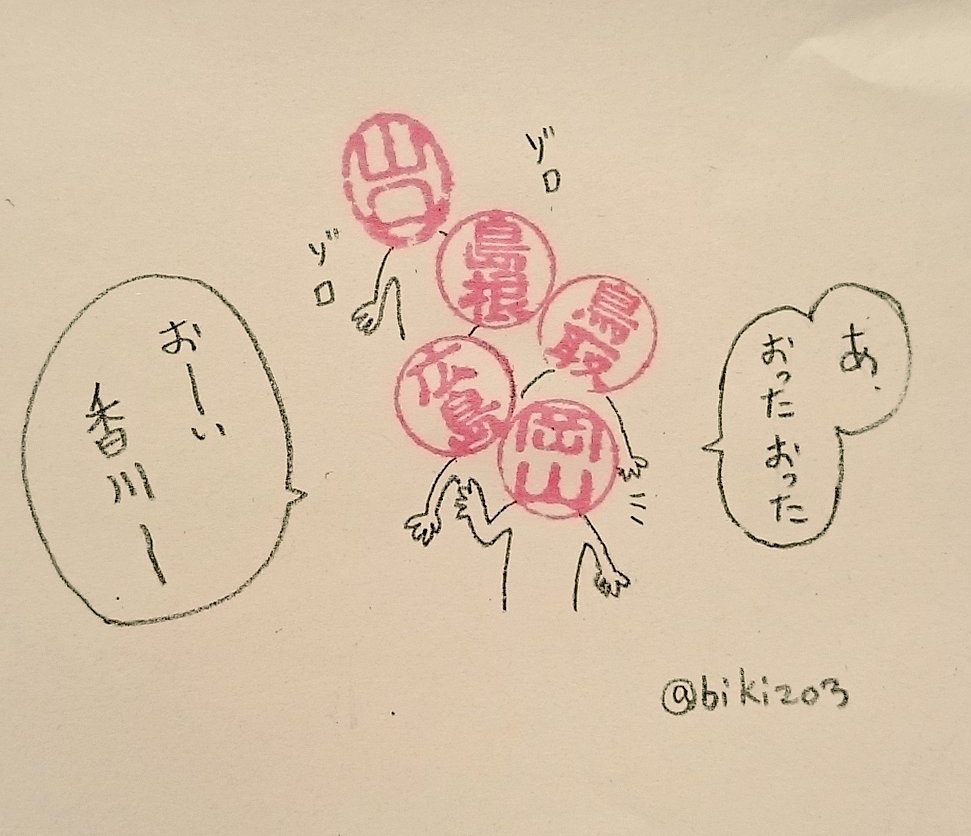 あ、
おったおった
ゾロ
ゾロ
山口
島根
鳥取
広島
岡山
おーい
香川ー
@bikizo3